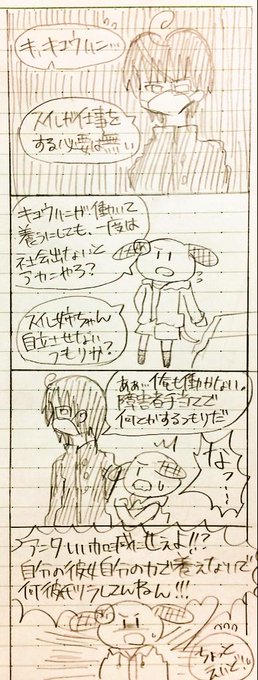 キ、キョウハニ…
スイしが仕事を
する必要は無い
キョウハニが働いて
養うにしても、一度は
社会出ないと
アカンやろ?
スイし姉ちゃん
自立させない
つもりか?
あぁ…俺も働かない。
障害者手当てで
何とかするつもりだ
なっ…
アンタいい加減にせえよ!!?
自分の彼女自分の力で養えないで
何彼氏ヅラしてんねん!!!
ちょっと